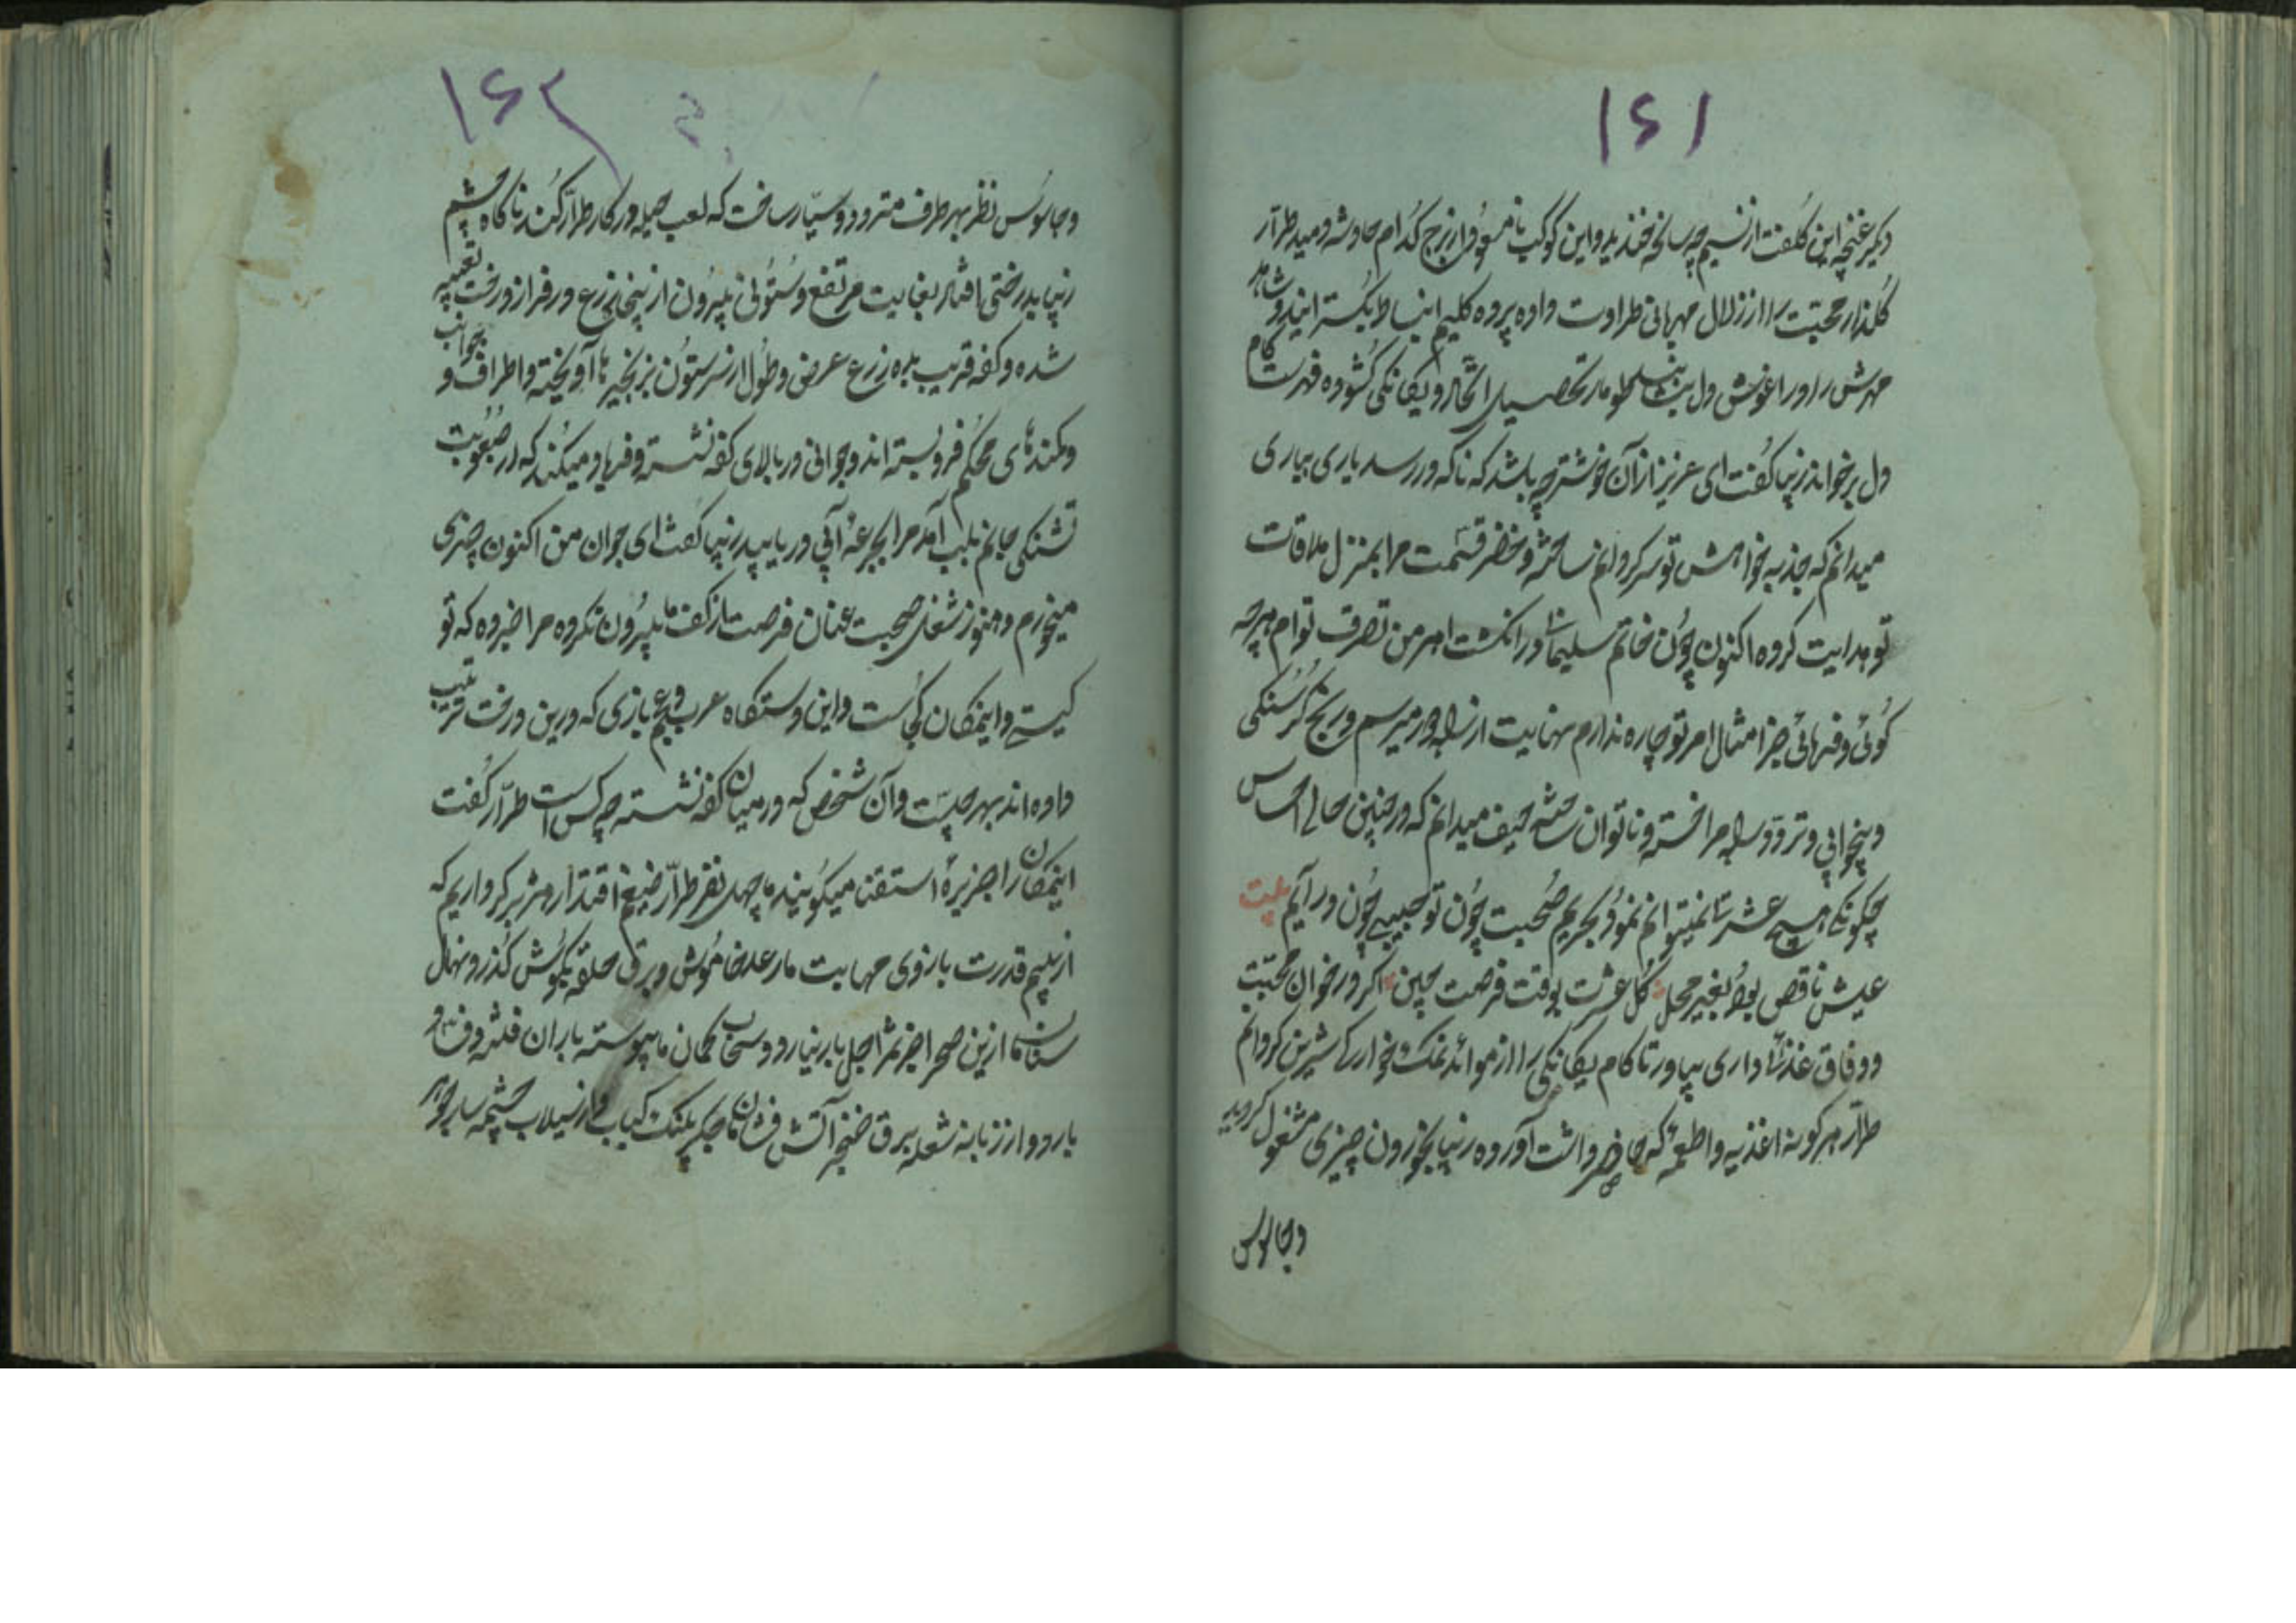 ۱۶۱
دیگر غنچه این کلفت از نسیم چه سانحه خندید و این کوکب نامسعود از برج کدام حادثه دمید طرار
گلذار محبت را از زلال مهربانی طراوت داده پرده کلیم انبساط بگسترانید و شاهد
مهرش را در اغوش دل بنشاند طومار تحصیل اتحاد و یگانگی گشوده فهرست کام
دل برخواند زیبا گفت ای عزیز از آن خوشتر چه باشد که ناگه در رسد یاری بیاری
میدانم که جذبه خواهش تو سرگردانم ساخته و خضر قسمت مرا بمنزل ملاقات
تو هدایت کرده اکنون چون خاتم سلیمان در انگشت اهرمن تصرف توام هرچه
گوئی و فرمائی جز امتثال امر تو چاره ندارم نهایت از راه دور میرسم و رنج گرسنگی
و بیخوابی و تردد راه مرا خسته و ناتوان ساخته حیف میدانم که در چنین حالی احساس
چگونگی هیچ عشرتی نمیتوانم نمود بحریم صحبت چون تو حبیبی چون در آیم بیت
عیش ناقص بود بغیر محل گل عشرت بوقت فرصت چین اگر در خوان محبت
و وفاق غذائی داری بیاور تا کام یگانگی را از موائد نمک خوارگی شیرین گردانم
طرار هر گونه اغذیه و اطعمه که حاضر داشت آورده زیبا بخوردن چیزی مشغول گردید
و جاسوس
۱۶۲
و جاسوس نظر بهر طرف متردد و سیار ساخت که لعب حیله در کار طرار کند ناگاه چشم
زیبا بدرختی افتاد بغایت مرتفع و ستونی بیرون از پنجاه زرع در فراز درخت تعبیه
شده و کفه قریب بده زرع عرض و طول از سر ستون بزنجیرها آویخته و اطراف و جوانب
و کمندهای محکم فرو بسته اند و جوانی در بالای کفه نشسته و فریاد میکند که از صعوبت
تشنگی جانم بلب آمد مرا بجرعه آبی دریابید زیبا گفت ای جوان من اکنون چیزی
میخورم و هنوز شغل صحبت عنان فرصت از کف ما بیرون نکرده مرا خبر ده که تو
کیستی و اینمکان کجاست و این دستگاه عرب و عجم بازی که درین درخت ترتیب
داده اند بهر چیست و آن شخص که در میان کفه نشسته چه کس است طرار گفت
اینمکان را جزیرهٔ استغنا میگویند ما چهل نفر طرار ضیغم اقتدار هژبر کرداریم که
از بیم قدرت بازوی مهابت ما رعد خاموش و برق حلقه بگوش گذرد و نهال
سنان ما ازین صحرا جز ثمر اجل بار نیارد و سحاب کمان ما پیوسته باران فتنه و فساد
بارد و از زبانه شعله برق خنجر آتش فشان ما جگر پلنگ کباب و از سیلاب چشمه سار جوهر